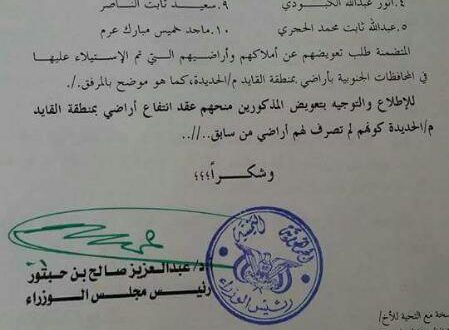 ٤.أنور عبدالله الكبودي
٩.سعيد ثابت الناصر
٥.عبدالله ثابت محمد الحجري
١٠.ماجد خميس مبارك عرم
المتضمنة طلب تعويضهم عن أملاكهم وأراضيهم التي تم الإستيلاء عليها
في المحافظات الجنوبية بأراضي بمنطقة القايد م/الحديدة،كما هو موضح بالمرفق./.
للإطلاع والتوجيه بتعويض المذكورين منحهم عقد انتفاع أراضي بمنطقة القايد
م/الحديدة كونهم لم تصرف لهم أراضي من سابق..//..
وشكــراً،،،
أ.د/عبدالعزيز صالح بن حبتور
رئيس مجلس الوزراء
الجمهورية اليمنية
رئيس الوزراء
سخة مع التحية للأخ/